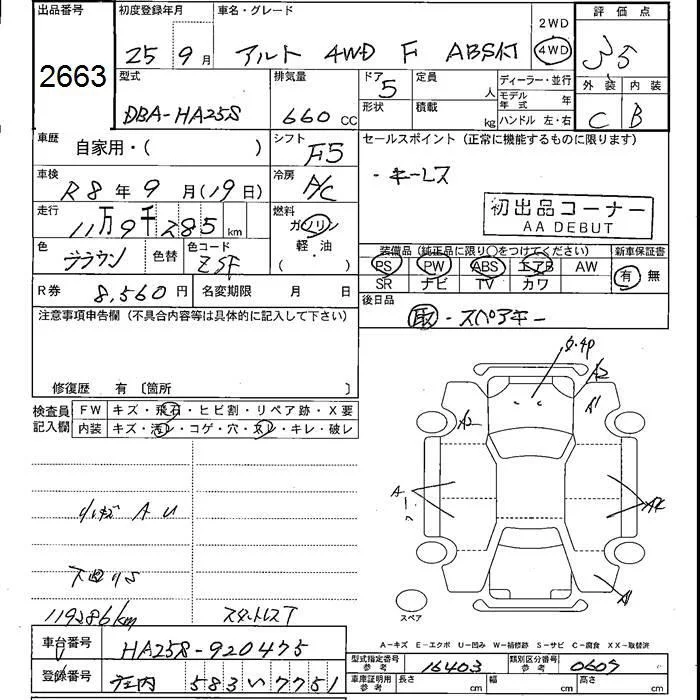 出品番号 初度登録年月 車名・グレード 2WD 評価点
2663 25 9月 アルト 4WD F ABS付 4WD 3.5
型式 排気量 ドア 5 定員 人 ディーラー・並行 外装 内装
DBA-HA25S 660 CC 形状 積載 kg モデル年式 年 C B
ハンドル 左・右
車歴 自家用・( ) シフト F5 セールスポイント (正常に機能するものに限ります)
車検 R8年9月(19日) 冷房 A/C ・キーレス
初出品コーナー
AA DEBUT
走行 11万9千285km 燃料 ガソリン 軽・油 ( )
色 ブラウン 色替 色コード ZSF
装備品 (純正品に限り○をつけてください) 新車保証書
PS PW ABS エアB AW 有 無
SR ナビ TV カワ
R券 8,560円 名変期限 月 日
後日品
取・スペアキー
注意事項申告欄 (不具合内容等は具体的に記入して下さい)
修復歴 有 〔箇所 〕
検査員記入欄 FW キズ・飛石・ヒビ割・リペア跡・X要
内装 キズ・汚レ・コゲ・穴・スレ・キレ・破レ
A2
A1
A2
A
小キズ A U
下回りS
119286km スタットレスT
スペア
A-キズ E-エクボ U-凹み W-補修跡 S-サビ C-腐食 XX-取替済
車台番号 HA25S-920475
型式指定番号 参考 16403 類別区分番号 参考 0607
登録番号 庄内 583 い 7751
車庫証明用 参考 長さ cm 幅 cm 高さ cm